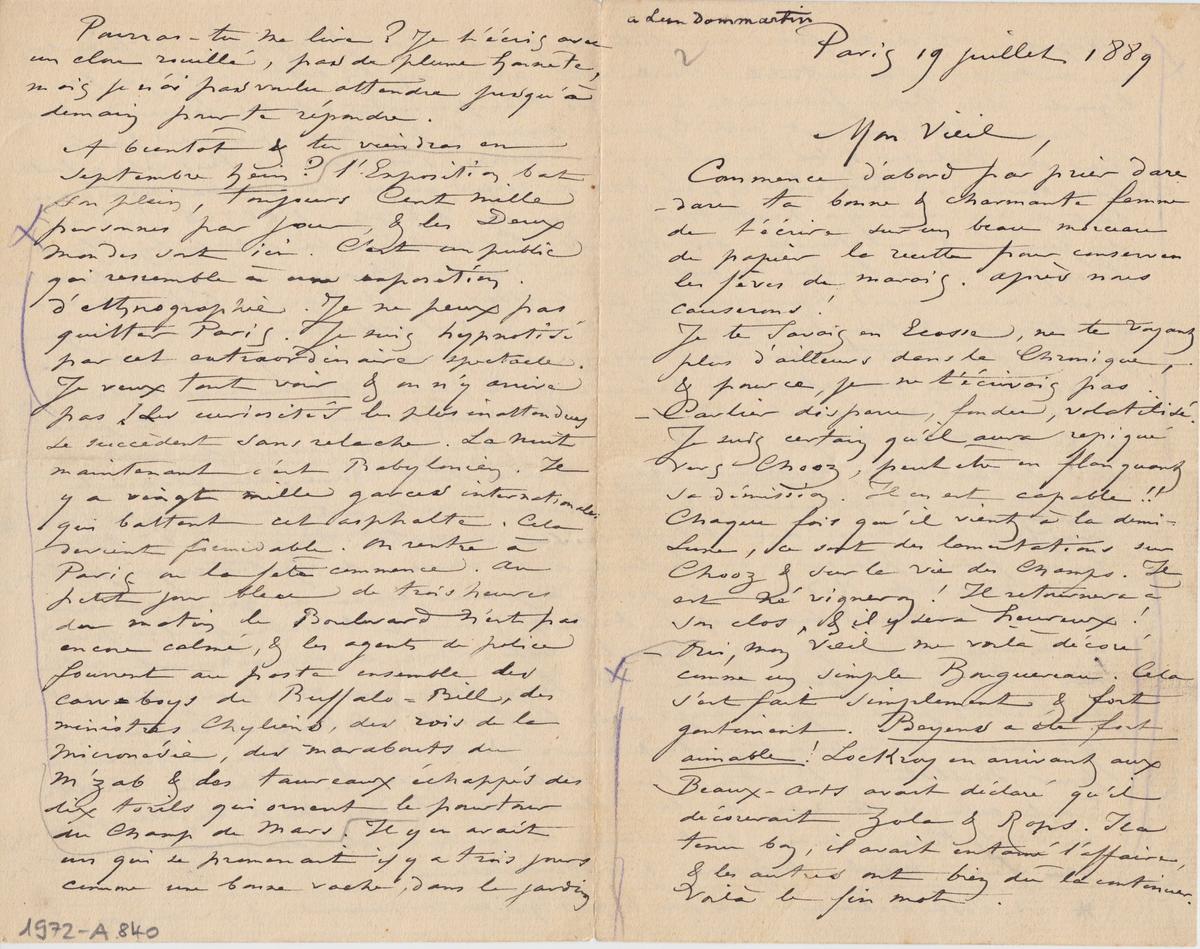 a Leon Dommartin
2
Paris 19 juillet 1889
Mon Vieil,
Commence d'abord par prier dare
-dare ta bonne & charmante femme
de t'écrire sur un beau morceau
de papier la recette pour conserver
les fèves de marais. après nous
causerons!
Je te savais en Ecosse, ne te voyant
plus d'ailleurs dans la Chronique,
& pour ce, je ne t'écrivais pas.
– Carlier disparu, fondu, volatilisé.
Je suis certain qu'il aura repiqué
vers Chooz, peut être en flanquant
sa démission. Il en est capable!!
Chaque fois qu'il vient à la demi-
Lune, ce sont des lamentations sur
Chooz & sur la vie des Champs. Il
est né vigneron! Il retournera à
son clos, & il y sera heureux!
– Oui, mon Vieil me voilà décoré
comme un simple Bouguereau. Cela
s'est fait simplement & fort
gentiment. Beyens a été fort
aimable! Lockroy en arrivant aux
Beaux-arts avait déclaré qu'il
décorerait Zola & Rops. Il a
tenu bon, il avait entamé l'affaire,
& les autres ont bien dû la continuer.
Voilà le fin mot.
Pourras-tu me lire? Je t'écris avec
un clou rouillé, pas de plume honnête,
mais je n'ai pas voulu attendre jusqu'à
demain pour te répondre.
A bientôt & tu viendras en
septembre hein? l'Exposition bat
son plein, toujours Cent mille
personnes par jour, & les Deux
mondes sont ici. C'est un public
qui ressemble à une exposition
d'ethnographie. Je ne peux pas
quitter Paris. Je suis hypnotisé
par cet extraordinaire spectacle.
Je veux tout voir & on n'y arrive
pas! Les curiosités les plus inattendues
se succèdent sans relache. La nuit
maintenant c'est Babylonien. Il
y a vingt mille garces internationales
qui battent cet asphalte. Cela
devient formidable. On rentre à
Paris où la fête commence. au
petit jour bleu de trois heures
du matin le Boulevard n'est pas
encore calmé, & les agents de police
fourrent au poste ensemble des
cow-boys de Buffalo-Bill, des
ministres Chyliens, des rois de la
Micronésie, des marabouts du
M'zab & des taureaux échappés des
dix torils qui ornent le pourtour
du Champ de Mars. Il y en avait
un qui se promenait il y a trois jours
comme une bonne vache, dans le jardin
1972-A 840